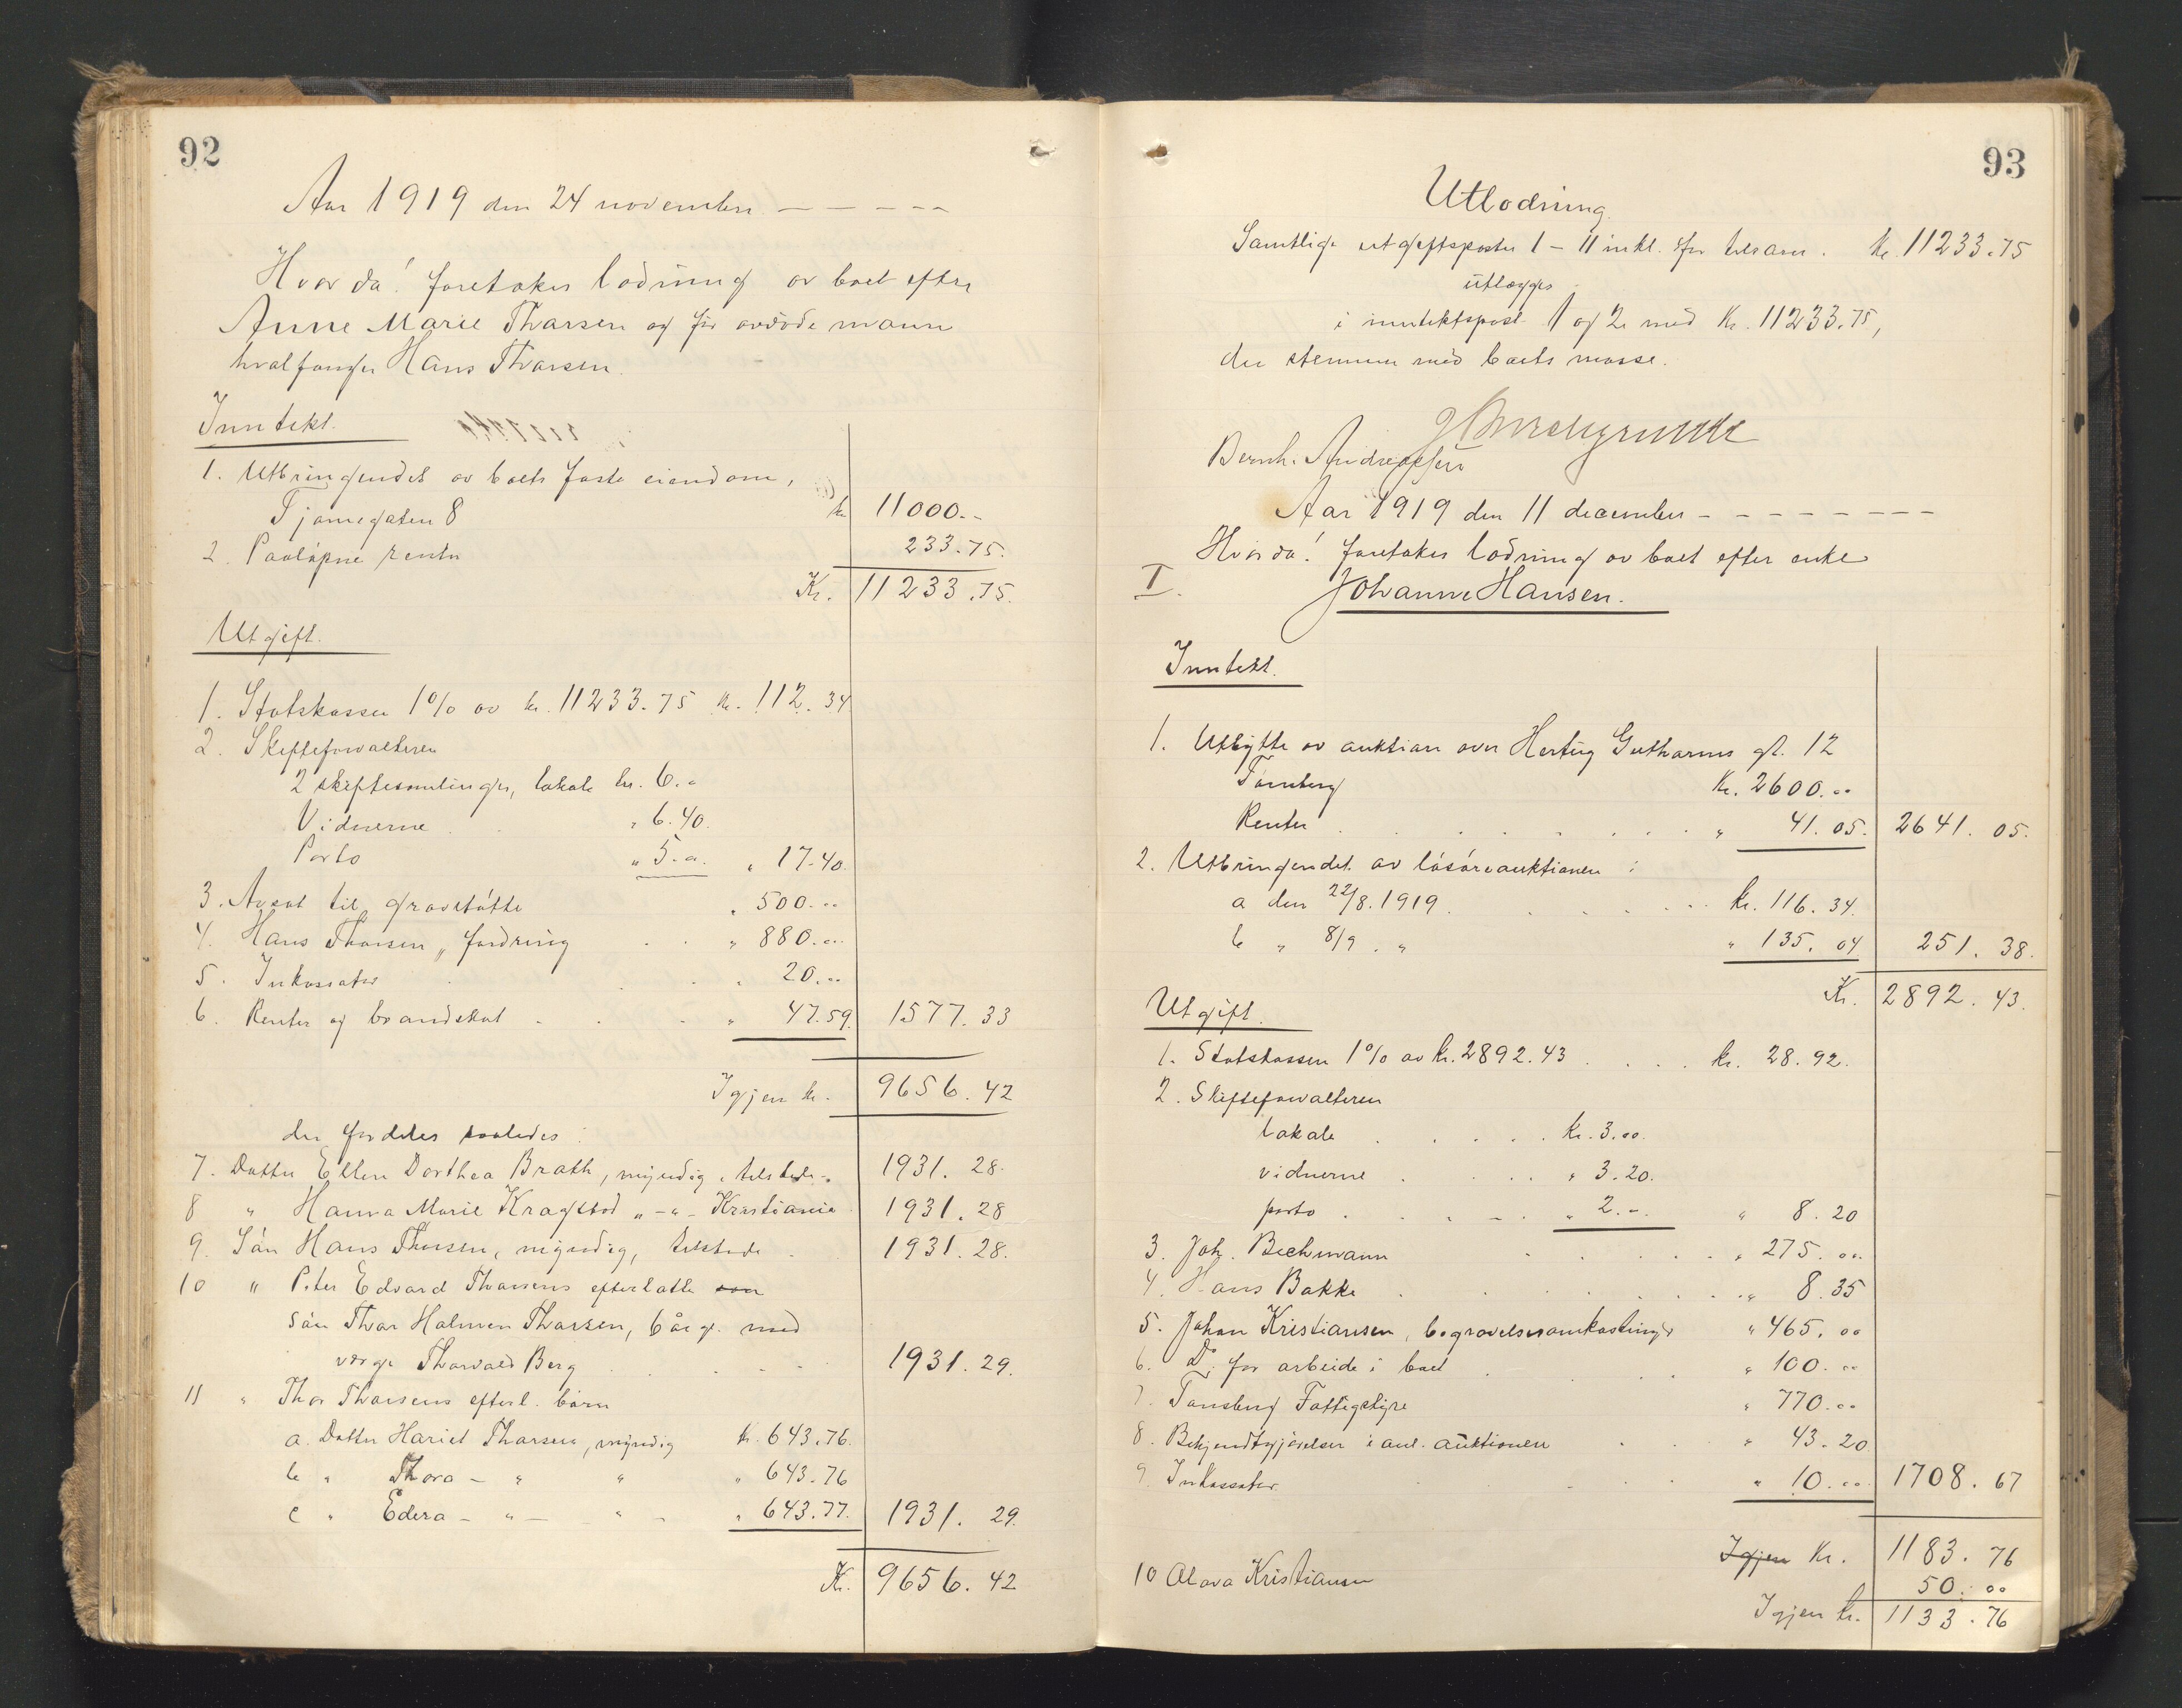 92
Aar 1919 den 24 november - - - - -
Hvorda! foretokes lodning av boet efter
Anne Marie Thorsen og før avdøde mann
hvalfanger Hans Thorsen.
Inntekt.
1. Utbringendet av boets faste eiendom,
Tjømegaten 8 kr 11000.-
2. Paaløpne renter 233.75.
Kr. 11233.75.
Utgift.
1. Statskassen 1% av kr. 11233.75 kr. 112.34
2. Skifteforvalteren
2 skiftesamlinger, lokale kr. 6.-
Vidnerne " 6.40.
Porto " 5.-. " 17.40.
3. Avsat til gravstøtte " 500.--
4. Hans Thorsen " fordring " 880.--
5. Inkassator " 20.--
6. Renter og brandskat " 47.59. 1577.33
Igjen kr. 9656.42
der fordeles saaledes:
7. Datter Ellen Dorthea Brath, myndig, tilstede. 1931.28.
8 " Hanna Marie Kragstad " - " - Kristiania 1931.28
9. Søn Hans Thorsen, myndig, tilstede 1931.28.
10 " Peter Edvard Thorsens efterlatte
søn Thor Holmen Thorsen, 6 år gl. med
verge Thorvald Berg 1931.29.
11 " Thor Thorsens efterl. børn
a. Datter Hariet Thorsen, myndig kr. 643.76.
b " Thora - " " " 643.76
c " Edera - " - " - " 643.77. 1931.29.
Kr. 9656.42
93
Utlodning.
Samtlige utgiftsposter 1 - 11 inkl. før tilsam. kr. 11233.75
utlægges
i inntektspost 1 og 2 med kr. 11233.75,
der stemmer med boets masse.
Bernh. Andreassen
Aar 1919 den 11 december - - - - - - - -
Hvorda! foretokes lodning av boet efter enke
I. Johanne Hansen.
Inntekt.
1. Utbytte av auktion over Hertug Guthorms gt. 12
Tønsberg Kr. 2600.--
Renter " 41.05. 2641.05.
2. Utbringendet av løsøreauktionen:
a den 22/8.1919. kr. 116.34.
b " 8/9. " " 135.04 251.38.
Kr. 2892.43.
Utgift.
1. Statskassen 1% av kr. 2892.43 kr. 28.92.
2. Skifteforvalteren
lokale kr. 3.00.
vidnerne " 3.20.
porto " 2.-. " 8.20
3. Joh. Bechmann " 275.00.
4. Hans Bakke " 8.35
5. Johan Kristiansen, begravelsesomkostninger " 465.00
6. Do. for arbeide i boet " 100.--
7. Tønsberg Fattigstyre " 770.--
8. Bekjendtgjørelser i anl. auktionen " 43.20
9. Inkassator " 10.00 1708.67
Igjen Kr. 1183.76
10 Olava Kristiansen 50.00
Igjen kr. 1133.76